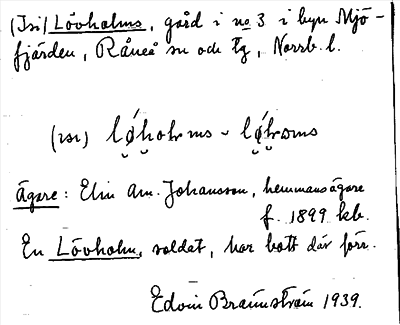 (Isi) Lövholms, gård i no 3 i byn Mjö-
fjärden, Råneå sn och tg, Norrb. l.
Ägare: Elin Am. Johansson, hemmansägare
f. 1899 kb.
En Lövholm, soldat, har bott där förr.
Edvin Brännström 1939.